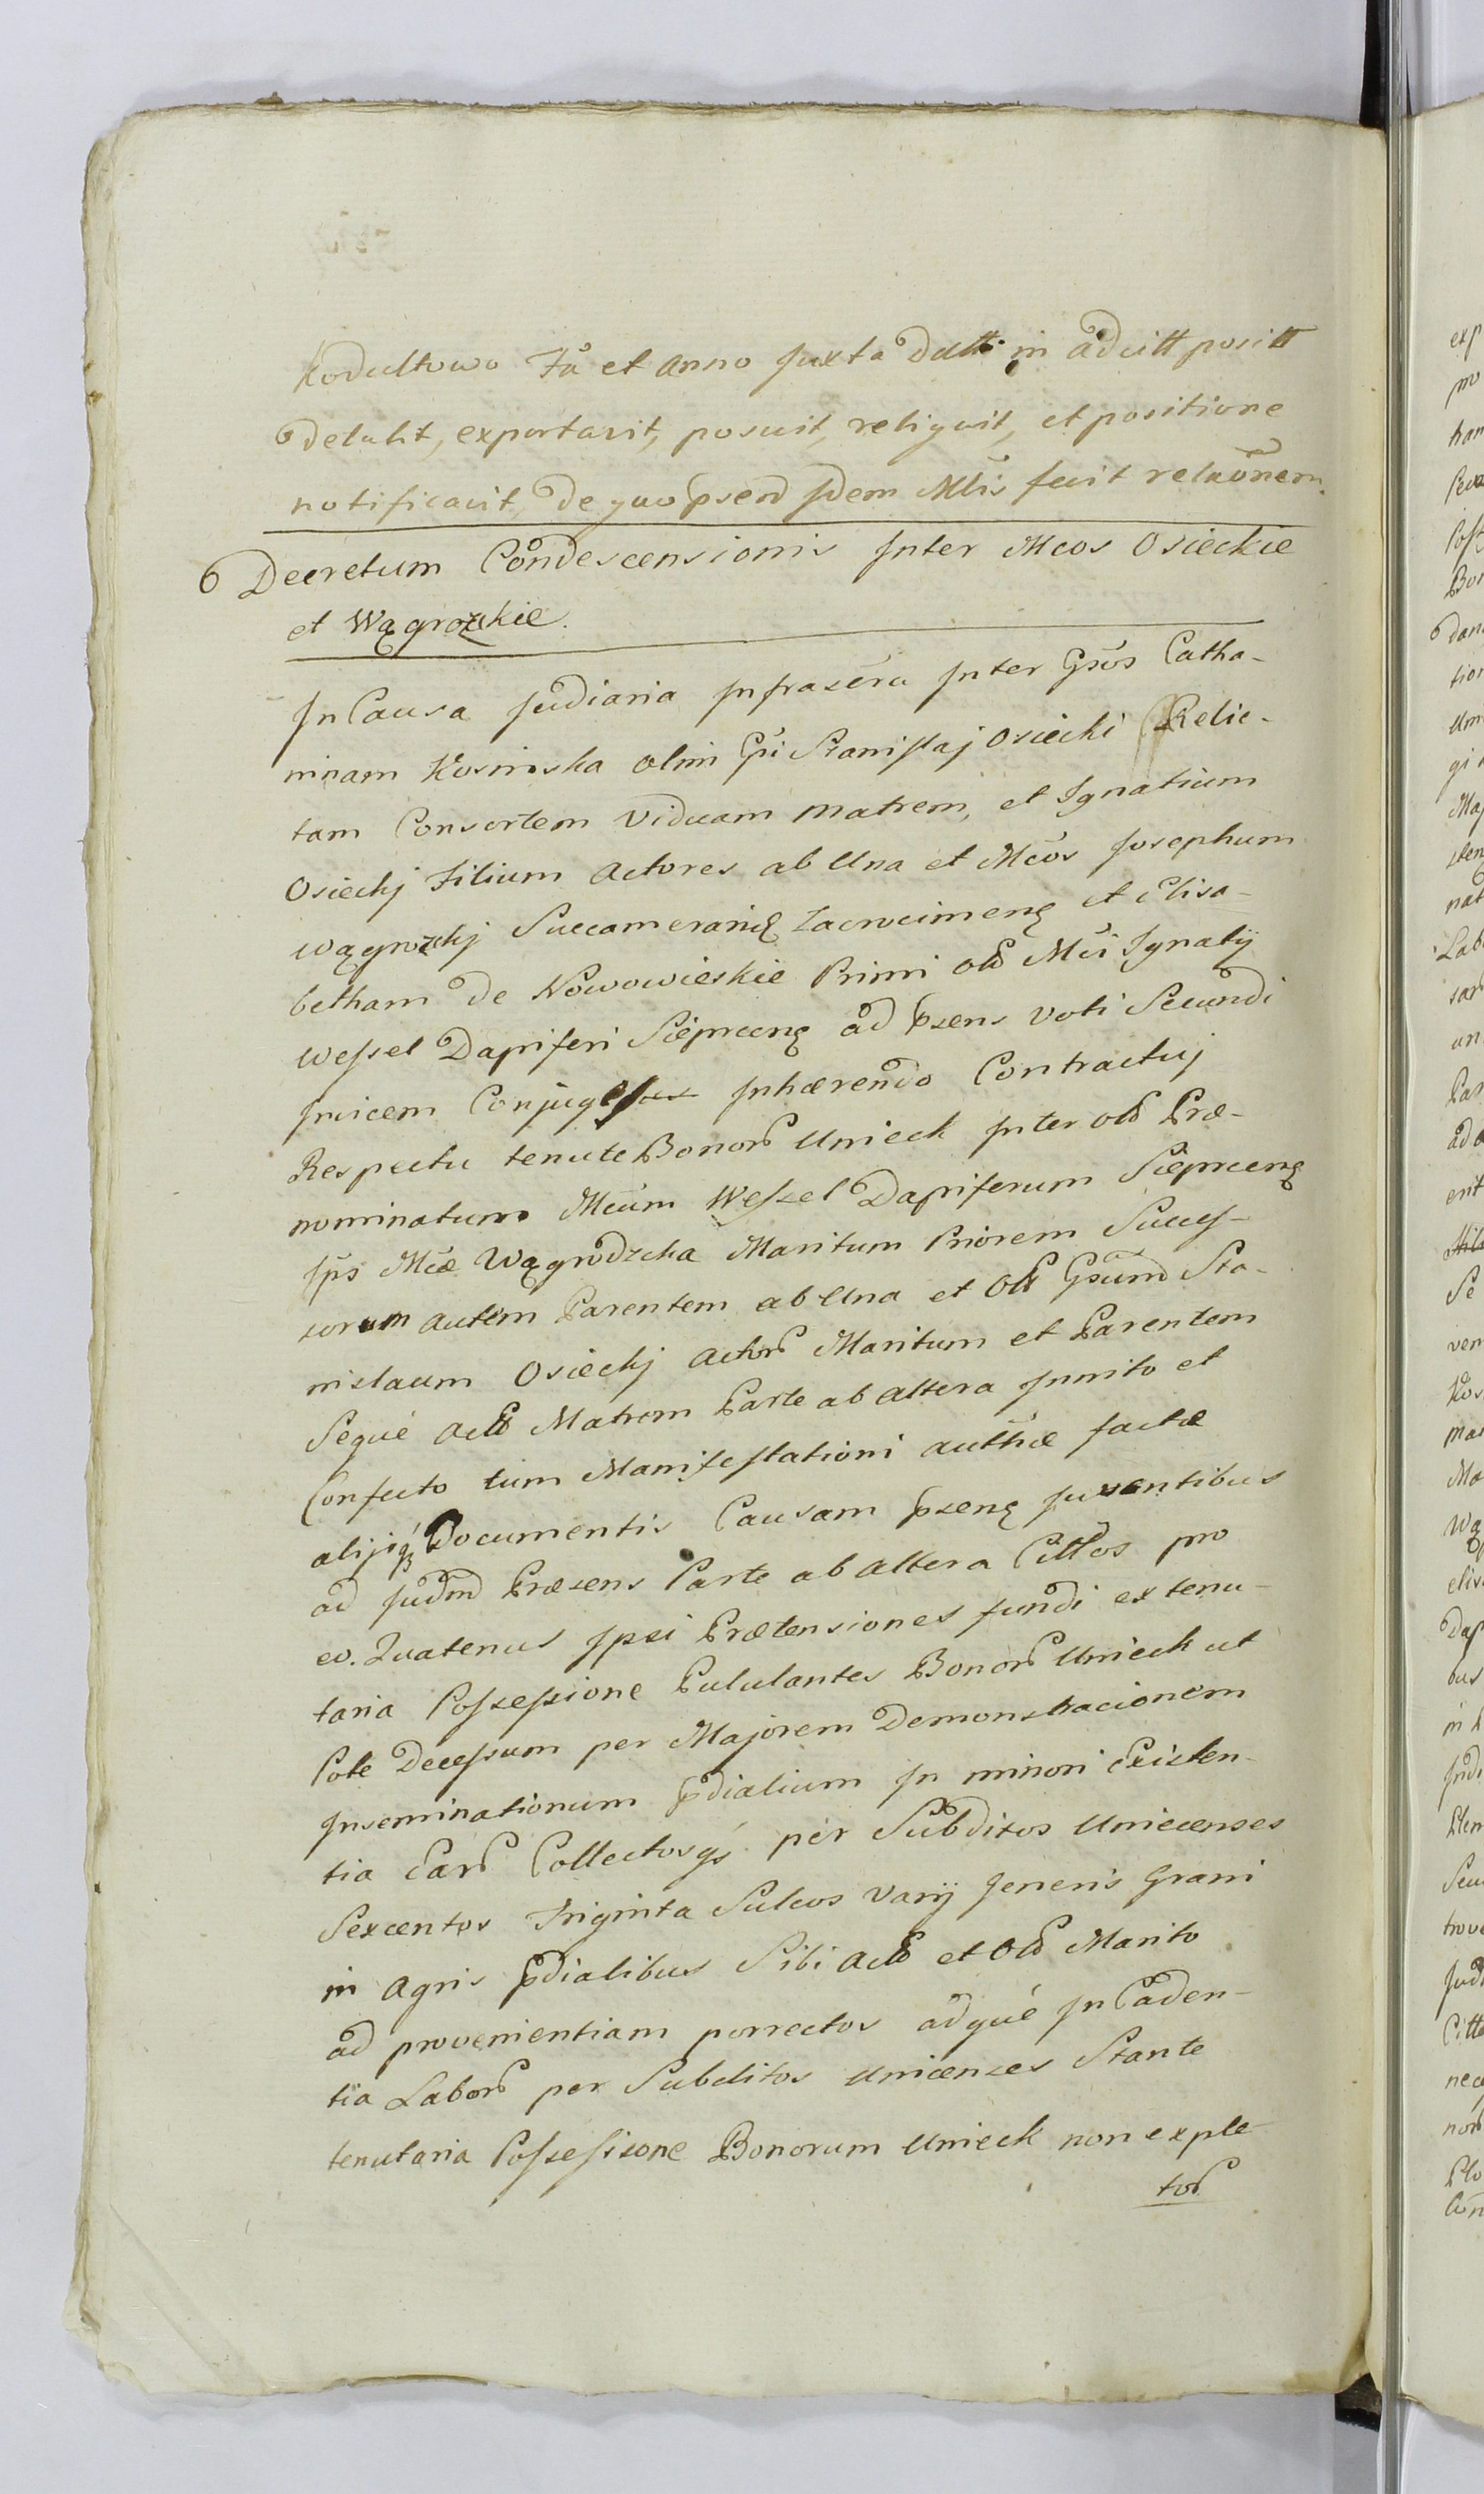 Kodultowo Fa et anno Juxta datt in adcitt positt
detulit, exportavit, posuit, reliquit, et positione
notificavit, de quo psend Jdem Mlis fecit relaōnem.
6 Decretum Condescensionis Inter Mcos Osieckie
et Wągrozkie.
In Causa Judiaria Infrascra Inter Gsos Catha-
rinam Kosinska olim Gsi Stanislaj Osiecki Relic-
tam Consortem Viduam Matrem, et Ignatium
Osieckj Filium Actores ab Una et Mcos Josephum
Wągrozkj Succamerarię Zacrocimenę et Elisa-
betham de Nowowieskie Primi olō Mci Ignatij
Wessel Dapiferi Sieprcenę ad psens voti Secundi
Invicem Conjuges Inhærendo Contractuj
Respectu tenute Bonorō Unieck Inter olō Præ-
nominatum Mcum Wessel Dapiferum Sieprcenę
Ips Mcæ Wągrodzcka Maritum Priorem Succes-
sorum autem Parentem ab Una et Olō Gsum Sta-
nislaum Osieckj Actorō Maritum et Parentem
Seque Actō Matrem Parte ab altera Innito et
Confecto tum Manifestationi authæ factæ
alijsq Documentis Causam psenę Juvantibus
ad Judm Præsens Parte ab altera Cittōs pro
eo. Quatenus Ipsi Prætensiones fundi ex tenu-
taria Possessione Pululantes Bonorō Unieck ut
Pote Decessum per Majorem Demonstracionem
Inseminationum pdialium In minori Existen-
tia Earō Collectosqs per Subditos Uniecenses
Sexcentos Triginta Sulcos Varij Generis Grani
in Agris pdialibus Sibi Actō et Olō Marito
ad provenientiam porrectos adque In Caden-
tia Laborō per Subditos Unicenses Stante
tenutaria Possessione Bonorum Unieck non exple-
torō